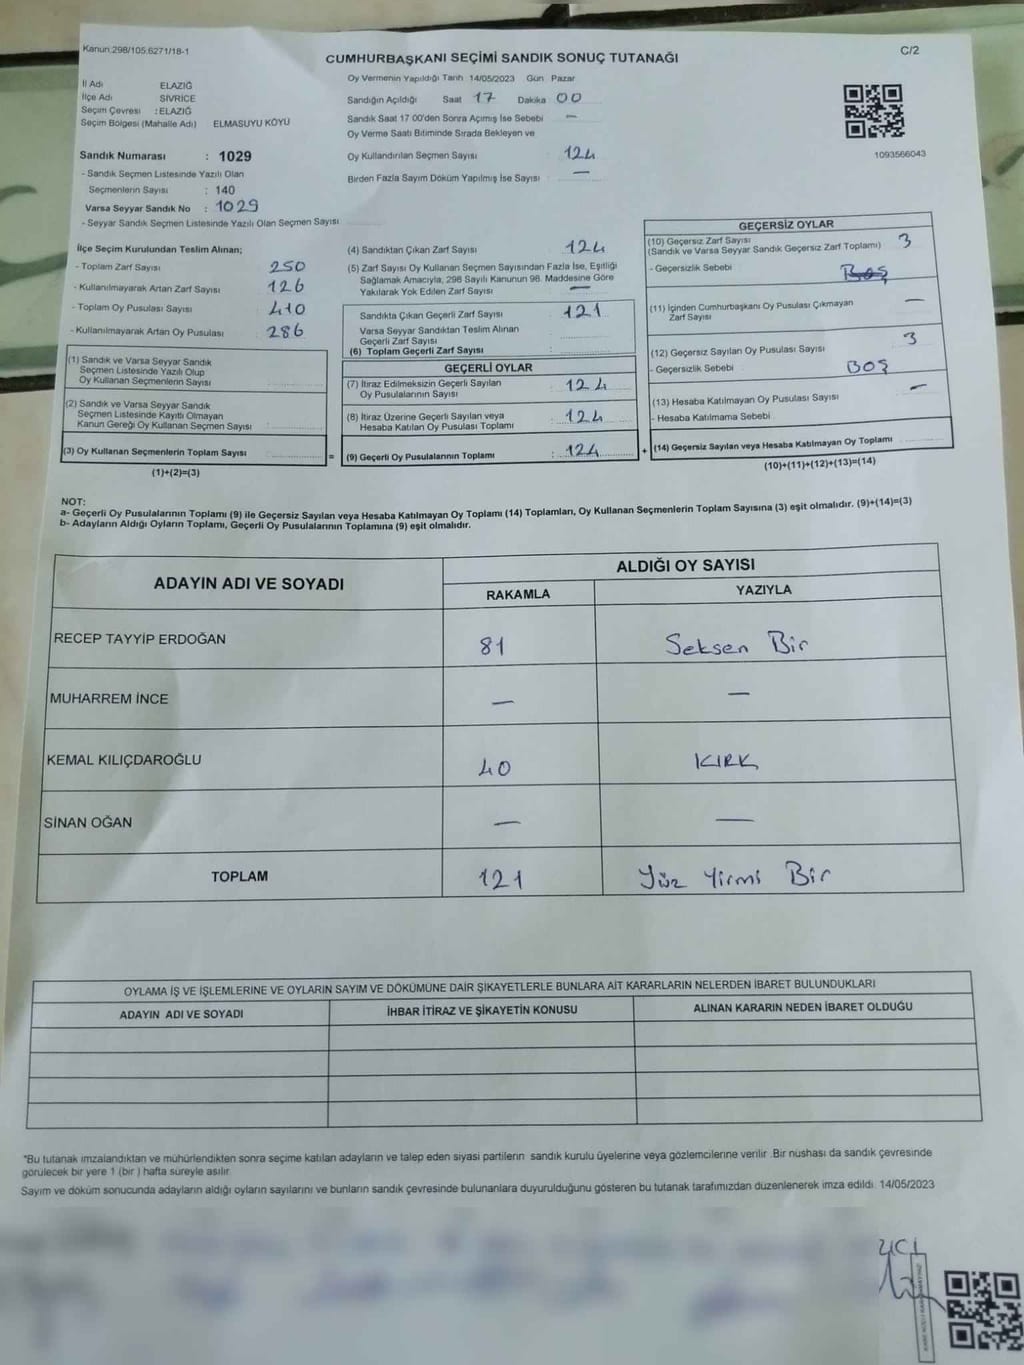 Kanun 298/105,6271/18-1
C/2
CUMHURBAŞKANI SEÇİMİ SANDIK SONUÇ TUTANAĞI
İl Adı ELAZIĞ
İlçe Adı SİVRİCE
Seçim Çevresi : ELAZIĞ
Seçim Bölgesi (Mahalle Adı) ELMASUYU KÖYÜ
Sandık Numarası : 1029
- Sandık Seçmen Listesinde Yazılı Olan
Seçmenlerin Sayısı : 140
Varsa Seyyar Sandık No : 1029
- Seyyar Sandık Seçmen Listesinde Yazılı Olan Seçmen Sayısı
Oy Vermenin Yapıldığı Tarih 14/05/2023 Gün Pazar
Sandığın Açıldığı Saat 17 Dakika 00
Sandık Saat 17 00'den Sonra Açımış İse Sebebi —
Oy Verme Saati Bitiminde Sırada Bekleyen ve
Oy Kullandırılan Seçmen Sayısı 124
Birden Fazla Sayım Döküm Yapılmış İse Sayısı : —
1093566043
İlçe Seçim Kurulundan Teslim Alınan;
- Toplam Zarf Sayısı 250
- Kullanılmayarak Artan Zarf Sayısı : 126
- Toplam Oy Pusulası Sayısı : 410
- Kullanılmayarak Artan Oy Pusulası : 286
(1) Sandık ve Varsa Seyyar Sandık
Seçmen Listesinde Yazılı Olup
Oy Kullanan Seçmenlerin Sayısı
(2) Sandık ve Varsa Seyyar Sandık
Seçmen Listesinde Kayıtlı Olmayan
Kanun Gereği Oy Kullanan Seçmen Sayısı
(3) Oy Kullanan Seçmenlerin Toplam Sayısı
(1)+(2)=(3)
=
(4) Sandıktan Çıkan Zarf Sayısı 124
(5) Zarf Sayısı Oy Kullanan Seçmen Sayısından Fazla İse, Eşitliği
Sağlamak Amacıyla, 298 Sayılı Kanunun 98. Maddesine Göre
Yakılarak Yok Edilen Zarf Sayısı —
Sandıkta Çıkan Geçerli Zarf Sayısı : 121
Varsa Seyyar Sandıktan Teslim Alınan
Geçerli Zarf Sayısı
(6) Toplam Geçerli Zarf Sayısı :
GEÇERLİ OYLAR
(7) İtiraz Edilmeksizin Geçerli Sayılan
Oy Pusulalarının Sayısı : 124
(8) İtiraz Üzerine Geçerli Sayılan veya
Hesaba Katılan Oy Pusulası Toplamı : 124
(9) Geçerli Oy Pusulalarının Toplamı : 124
+
GEÇERSİZ OYLAR
(10) Geçersiz Zarf Sayısı
(Sandık ve Varsa Seyyar Sandık Geçersiz Zarf Toplamı) 3
- Geçersizlik Sebebi BOŞ
(11) İçinden Cumhurbaşkanı Oy Pusulası Çıkmayan
Zarf Sayısı —
(12) Geçersiz Sayılan Oy Pusulası Sayısı 3
- Geçersizlik Sebebi BOŞ
(13) Hesaba Katılmayan Oy Pusulası Sayısı —
- Hesaba Katılmama Sebebi
(14) Geçersiz Sayılan veya Hesaba Katılmayan Oy Toplamı
(10)+(11)+(12)+(13)=(14)
NOT:
a- Geçerli Oy Pusulalarının Toplamı (9) ile Geçersiz Sayılan veya Hesaba Katılmayan Oy Toplamı (14) Toplamları, Oy Kullanan Seçmenlerin Toplam Sayısına (3) eşit olmalıdır. (9)+(14)=(3)
b- Adayların Aldığı Oyların Toplamı, Geçerli Oy Pusulalarının Toplamına (9) eşit olmalıdır.
ADAYIN ADI VE SOYADI ALDIĞI OY SAYISI
RAKAMLA YAZIYLA
RECEP TAYYİP ERDOĞAN 81 Seksen Bir
MUHARREM İNCE — —
KEMAL KILIÇDAROĞLU 40 KIRK
SİNAN OĞAN — —
TOPLAM 121 Yüz Yirmi Bir
OYLAMA İŞ VE İŞLEMLERİNE VE OYLARIN SAYIM VE DÖKÜMÜNE DAİR ŞİKAYETLERLE BUNLARA AİT KARARLARIN NELERDEN İBARET BULUNDUKLARI
ADAYIN ADI VE SOYADI İHBAR İTİRAZ VE ŞİKAYETİN KONUSU ALINAN KARARIN NEDEN İBARET OLDUĞU
*Bu tutanak imzalandıktan ve mühürlendikten sonra seçime katılan adayların ve talep eden siyasi partilerin sandık kurulu üyelerine veya gözlemcilerine verilir .Bir nüshası da sandık çevresinde
görülecek bir yere 1 (bir ) hafta süreyle asılır
Sayım ve döküm sonucunda adayların aldığı oyların sayılarını ve bunların sandık çevresinde bulunanlara duyurulduğunu gösteren bu tutanak tarafımızdan düzenlenerek imza edildi. 14/05/2023